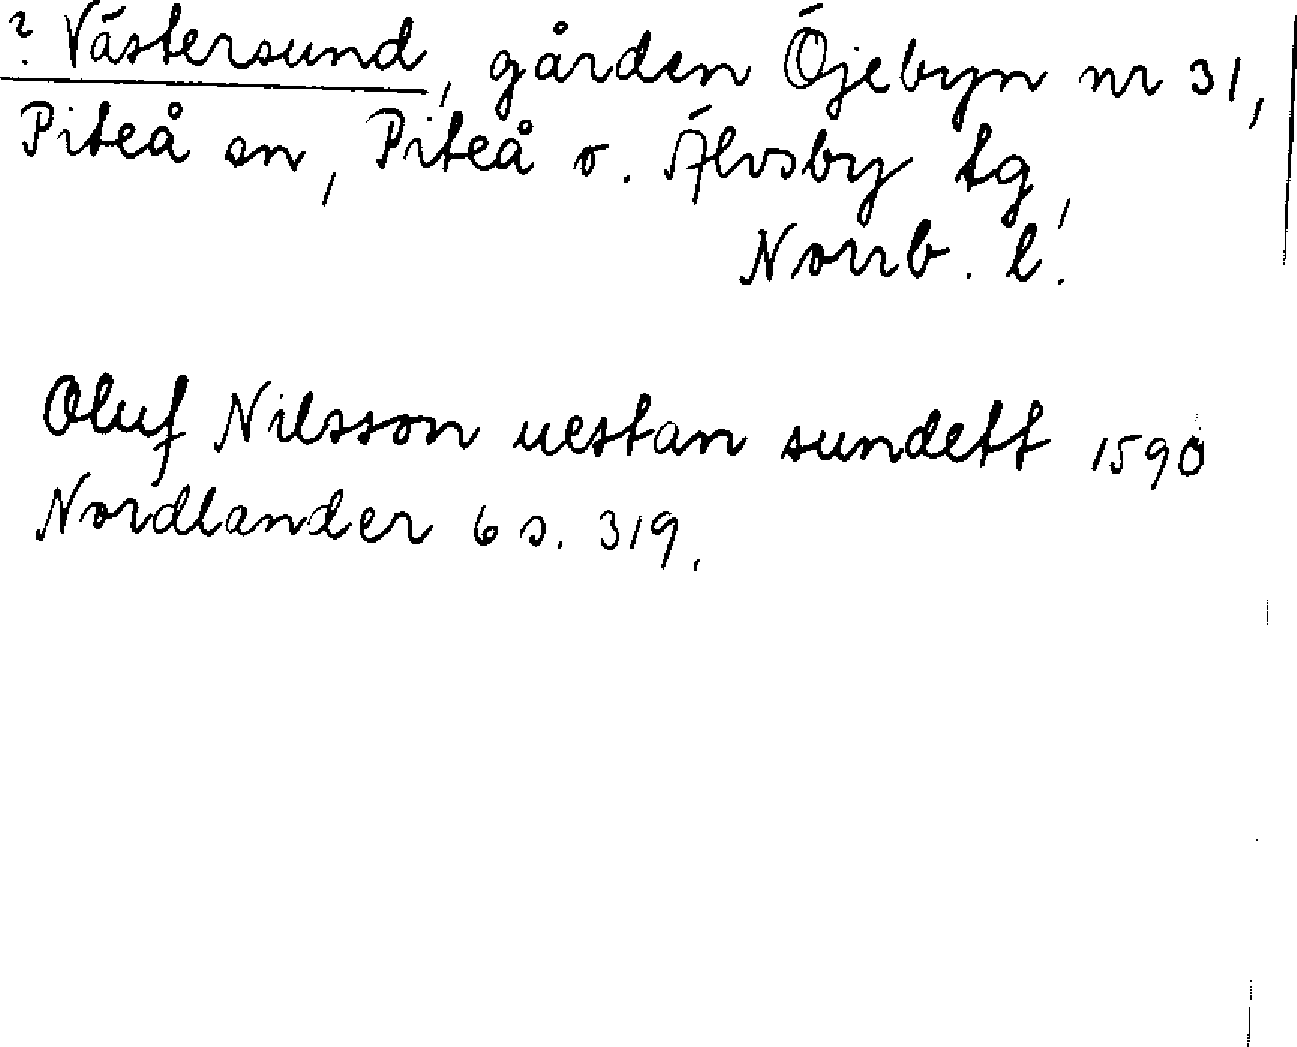 ? Västersund, gården Öjebyn nr 31,
Piteå sn, Piteå o. Älvsby tg,
Norrb. l.
Oluf Nilsson uestan sundett 1590
Nordlander 6 s. 319.